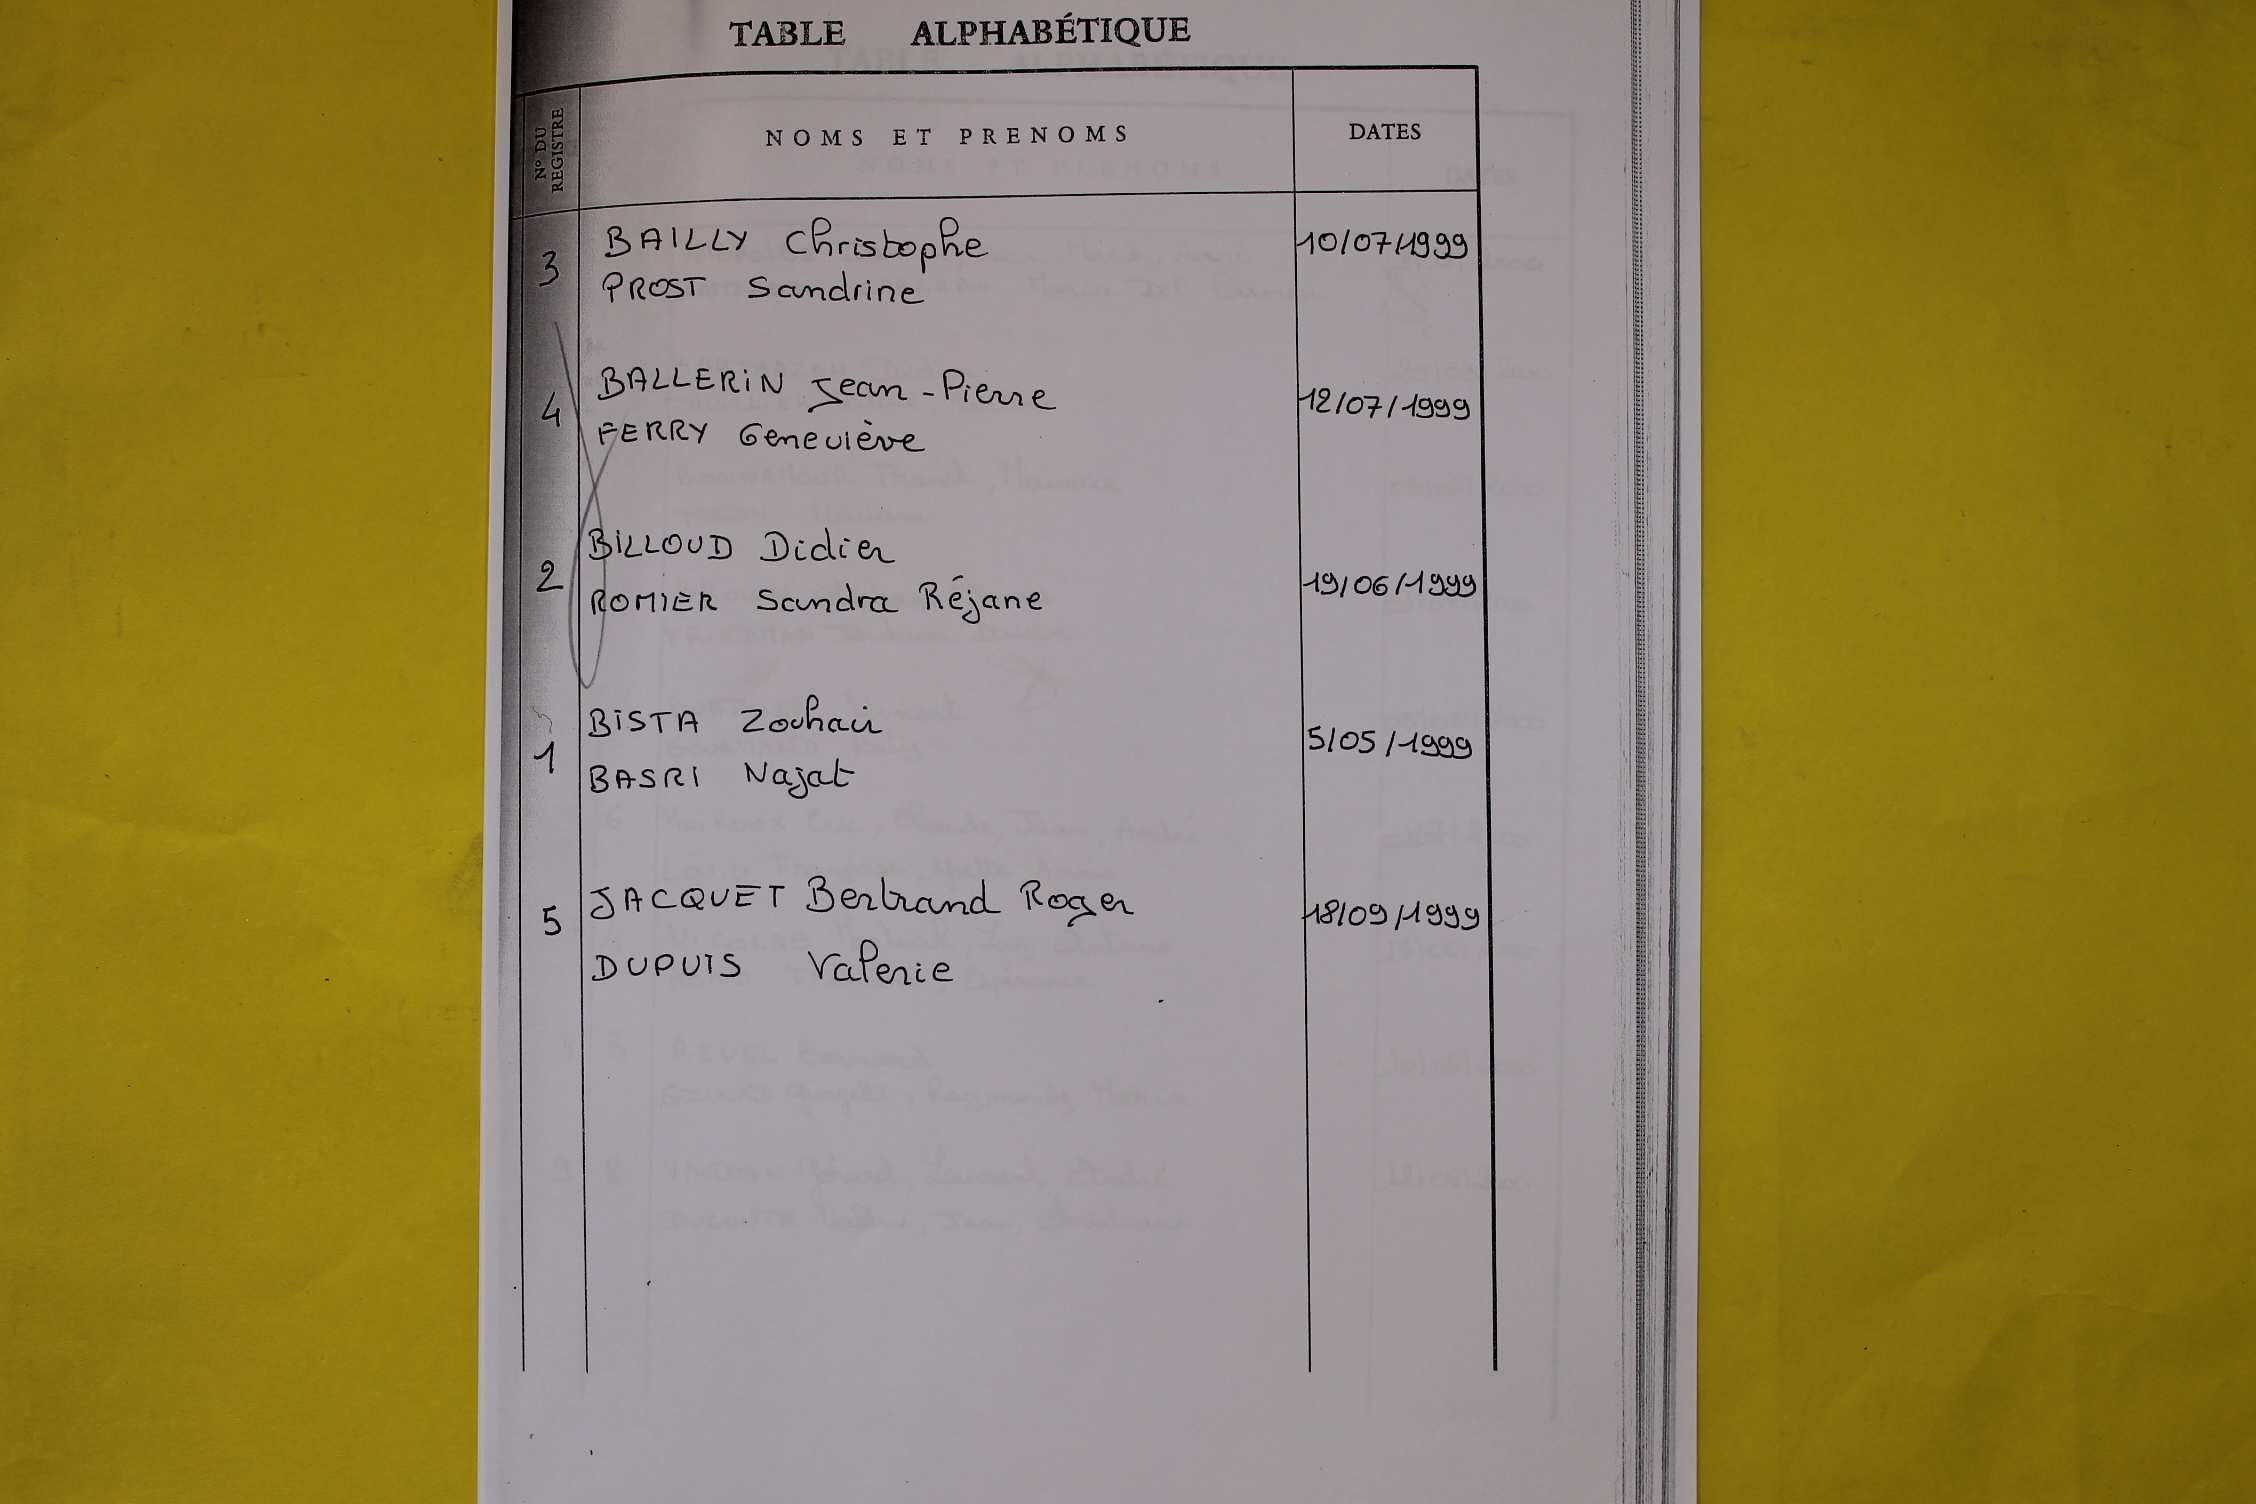 TABLE ALPHABÉTIQUE
N° DU REGISTRE NOMS ET PRENOMS DATES
3 BAILLY Christophe 10/07/1999
PROST Sandrine
4 BALLERiN Jean-Pierre 12/07/1999
FERRY Geneviève
BiLLOUD Didier
2 ROMIER Sandra Réjane 19/06/1999
BiSTA Zouhair
1 BASRI Najat 5/05/1999
5 JACQUET Bertrand Roger 18/09/1999
DUPUIS Valerie